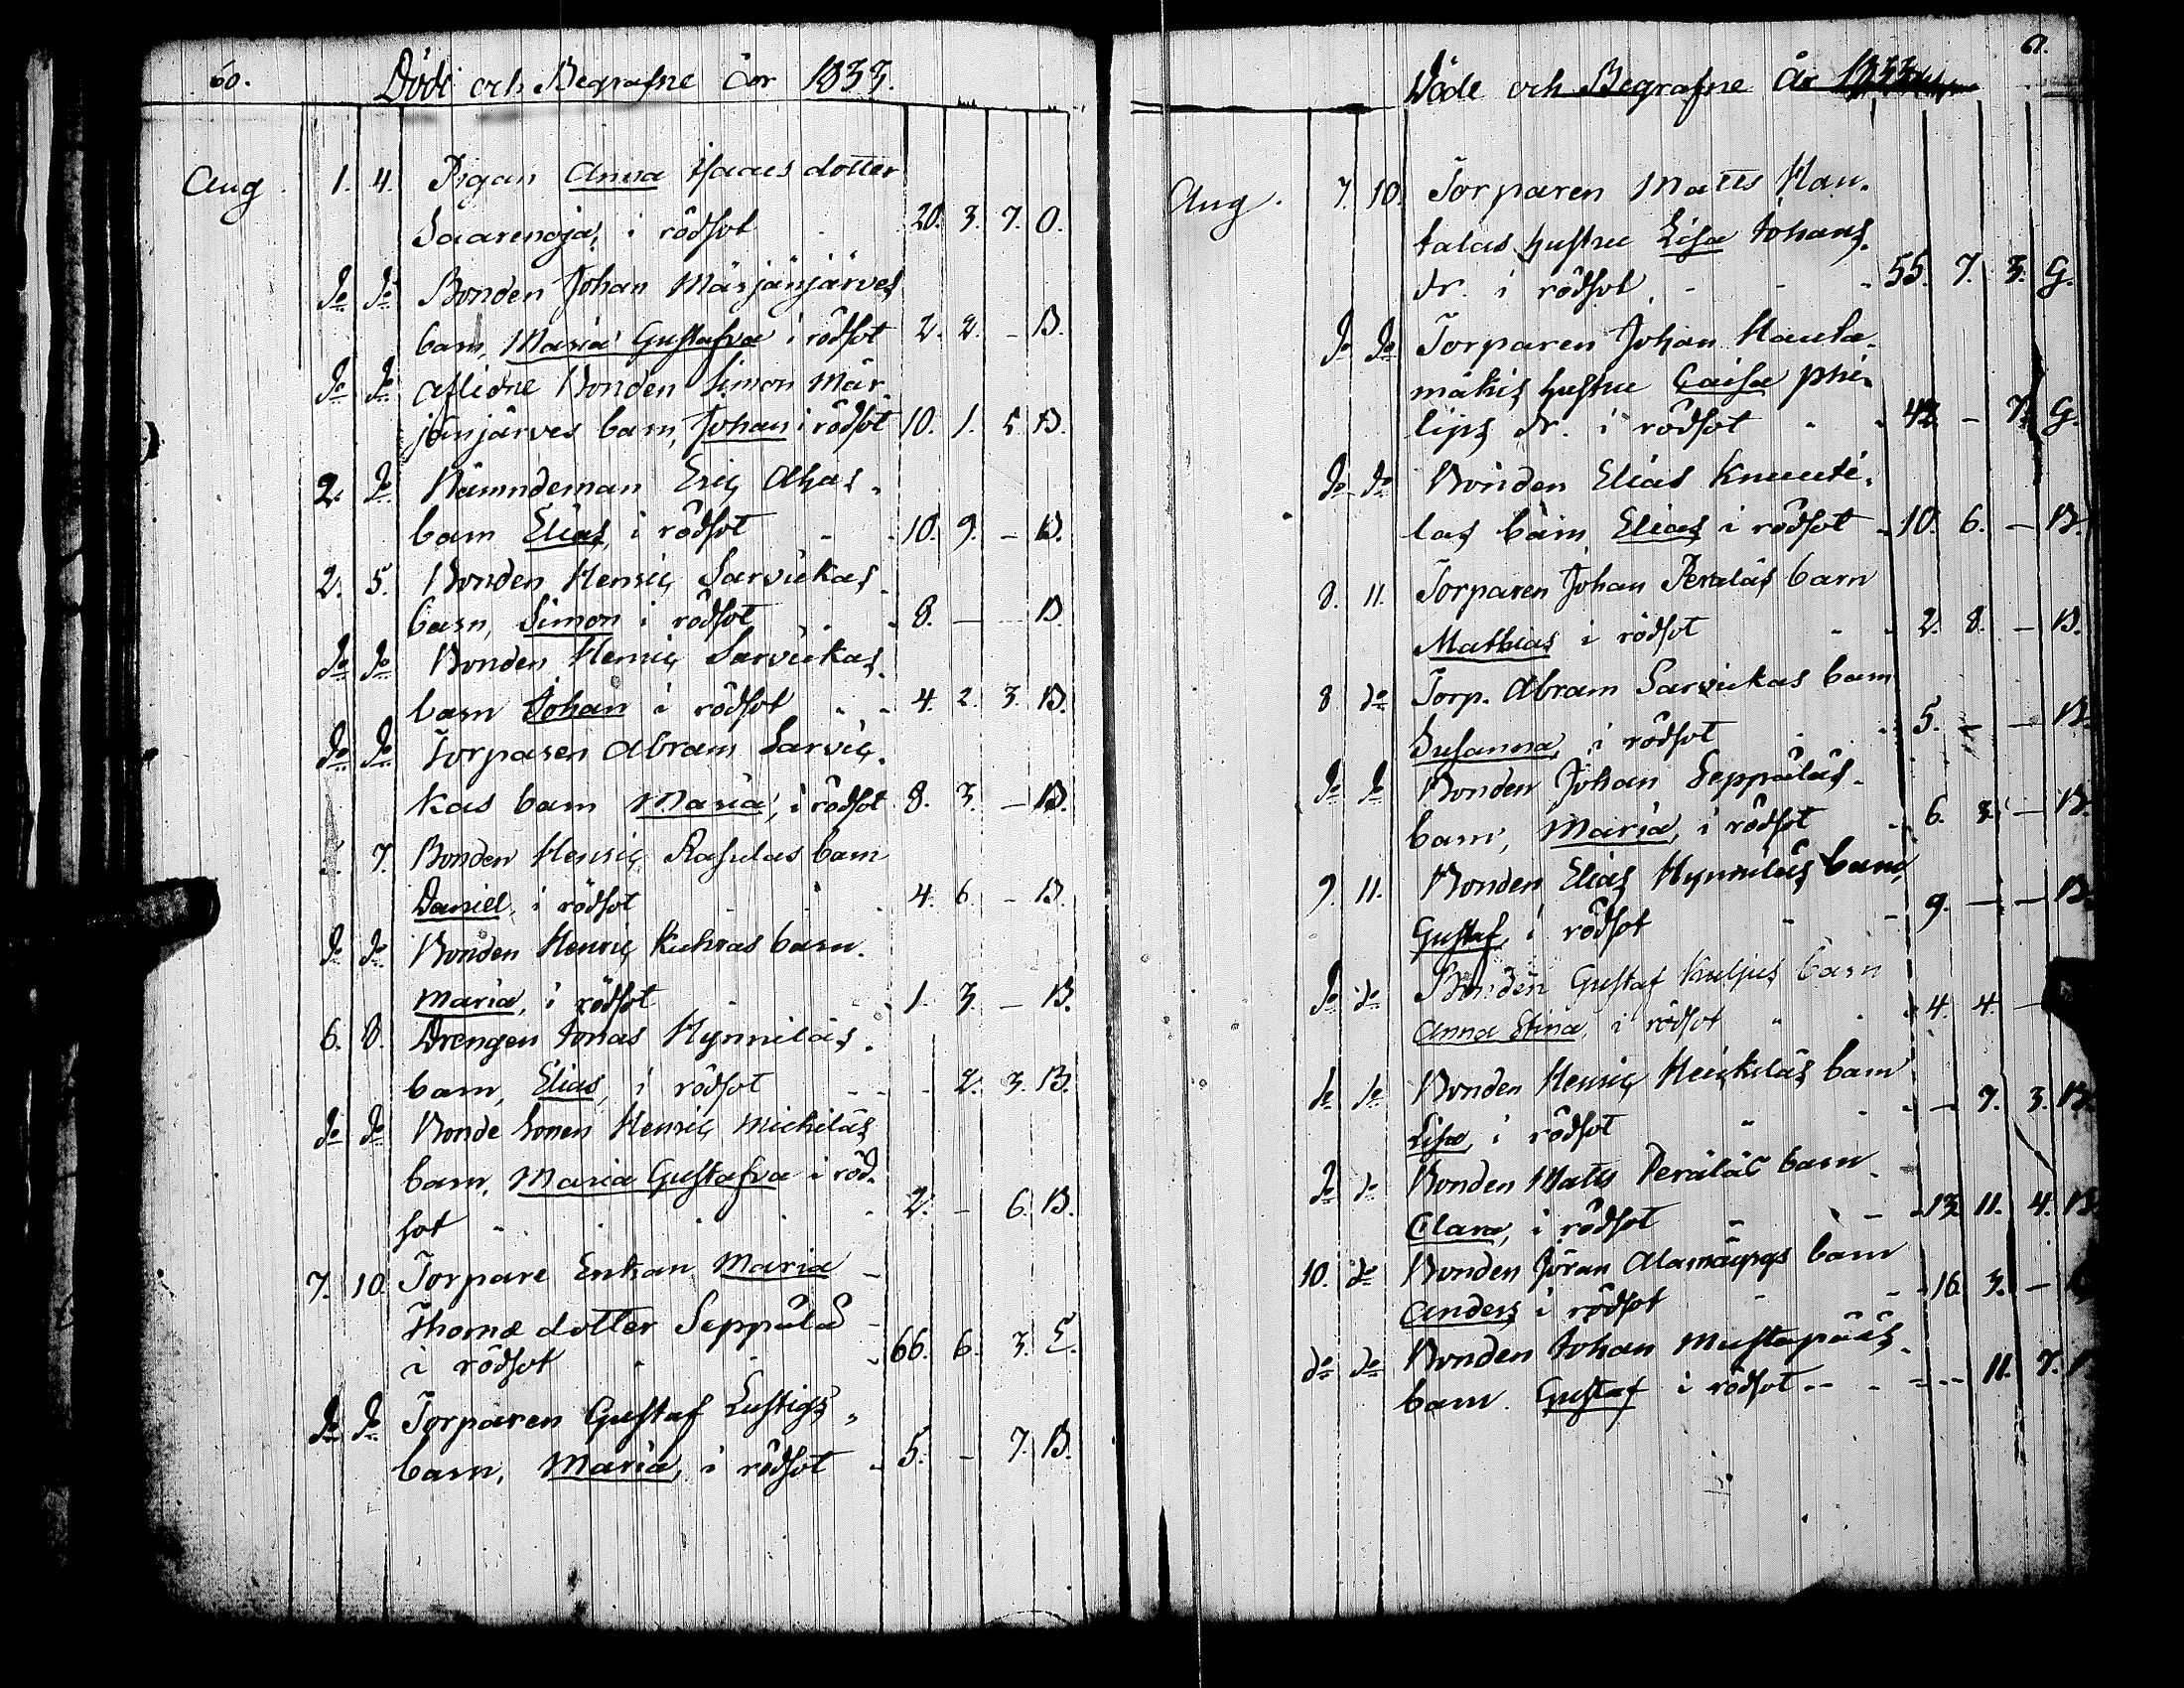 60.
Döde och Begrafne År 1833.
Aug. 1. 4. Pigan Anna Isaacs dotter
Saarenoja, i rödsot 20. 3. 7. O.
do do Bonden Johan Märjänjärves
barn, Maria Gustafva i rödsot 2. 2. - B.
do do aflidne Bonden Simon Mär
jänjärves barn, Johan i rödsot 10. 1. 5. B.
2. do Nämndeman Eric Ahas
barn Elias, i rödsot 10. 9. - B.
2. 5. Bonden Henric Sarvickas
barn, Simon i rödsot 8. - - B.
do do Bonden Henric Sarvickas
barn Johan i rödsot 4. 2. 3. B.
do do Torparen Abram Sarvic
kas barn Maria, i rödsot 8. 3. - B.
7. Bonden Henric Rasulas barn
Daniel, i rödsot 4. 6. - B.
do do Bonden Henric Kuhras barn
Maria, i rödsot 1. 3. - B.
6. 8. Drengen Jonas Hynniläs
barn, Elias, i rödsot - 2. 3. B.
do do Bonde Sonen Henric Mickiläs
barn, Maria Gustafva i röd
sot 2. - 6. B.
7. 10 Torpare Enkan Maria
Thomæ dotter Seppälä
i rödsot 66. 6. 3. E.
do do Torparen Gustaf Lustigs
barn, Maria, i rödsot 5. - 7. B.
61.
Döde och Begrafne År 1833
Aug. 7. 10. Torparen Matts Han
talas hustru Lisa Johans
dr. i rödsot 55. 7. 3. G.
do do Torparen Johan Hauta
mäkis hustru Caisa Phi
lips dr. i rödsot 42 - 7. G.
do do Bonden Elias Knuuti
las barn Elias i rödsot 10. 6. - B.
8. 11. Torparen Johan Peraläs barn
Mathias i rödsot 2. 8. - B.
8 do Torp. Abram Sarvickas barn
Susanna, i rödsot 5. - - B.
do do Bonden Johan Seppäläs
barn, Maria, i rödsot 6. 8. - B.
9. 11. Bonden Elias Hynniläs barn,
Gustaf, i rödsot 9. - - B.
do do Bonden Gustaf Kuljus barn
Anna Stina, i rödsot 4. 4. -
do do Bonden Henric Heickiläs barn
Lisa, i rödsot - 7. 3. B.
do do Bonden Matts Peräläs barn
Clara, i rödsot 13. 11. 4. B.
10. do Bonden Jöran Alamäyrys barn
Anders i rödsot 16. 3. -
do do Bonden Johan Mustapääs
barn. Gustaf i rödsot - 11. 7.